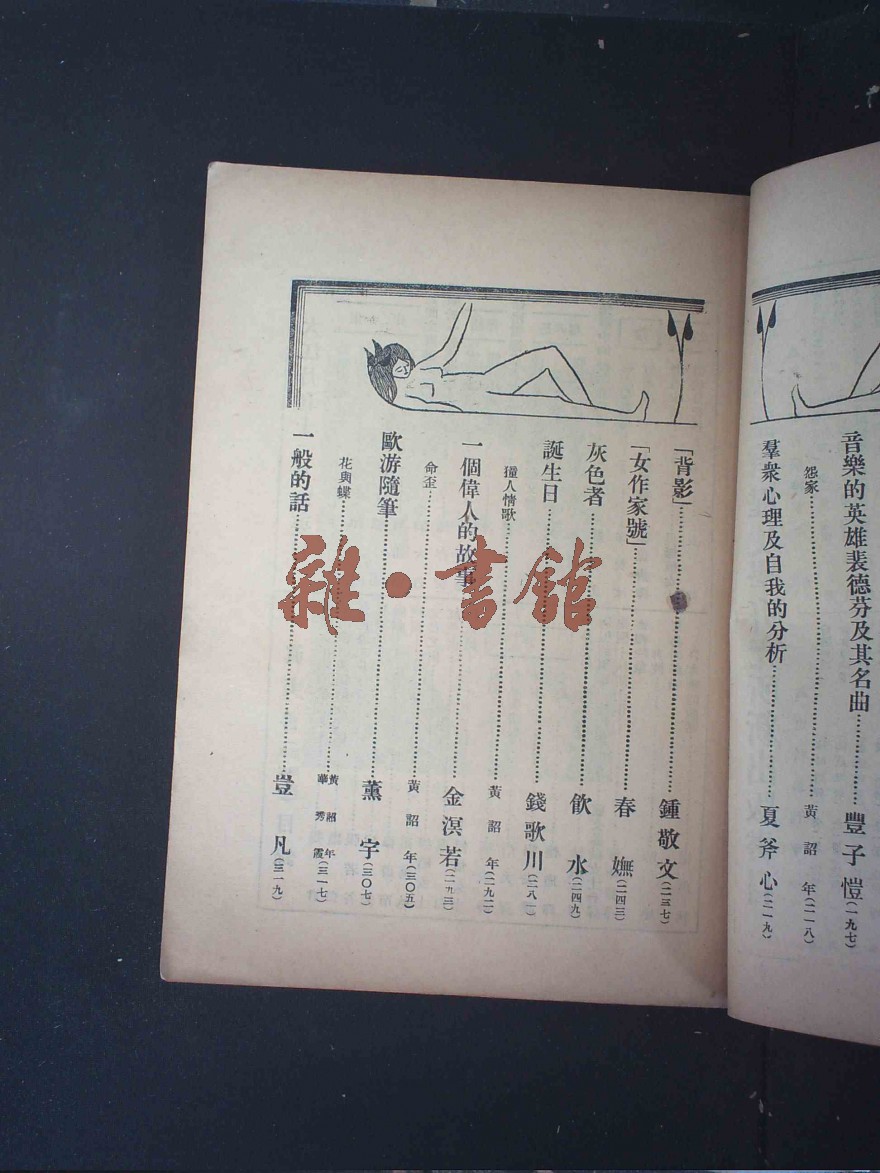 音樂的英雄裴德芬及其名曲……豐子愷(一九七)
怨家……黃詔年(二一八)
羣衆心理及自我的分析……夏斧心(二一九)
「背影」……鍾敬文(二三七)
「女作家號」……春嫵(二四三)
灰色者……飲水(二四九)
誕生日……錢歌川(二八一)
獞人情歌……黃詔年(二九二)
一個偉人的故事……金溟若(二九三)
命歪……黃詔年(三〇五)
歐游隨筆……薰宇(三〇七)
花與蝶……黃詔年 華秀霞(三一七)
一般的話……豈凡(三一九)
雜·書館